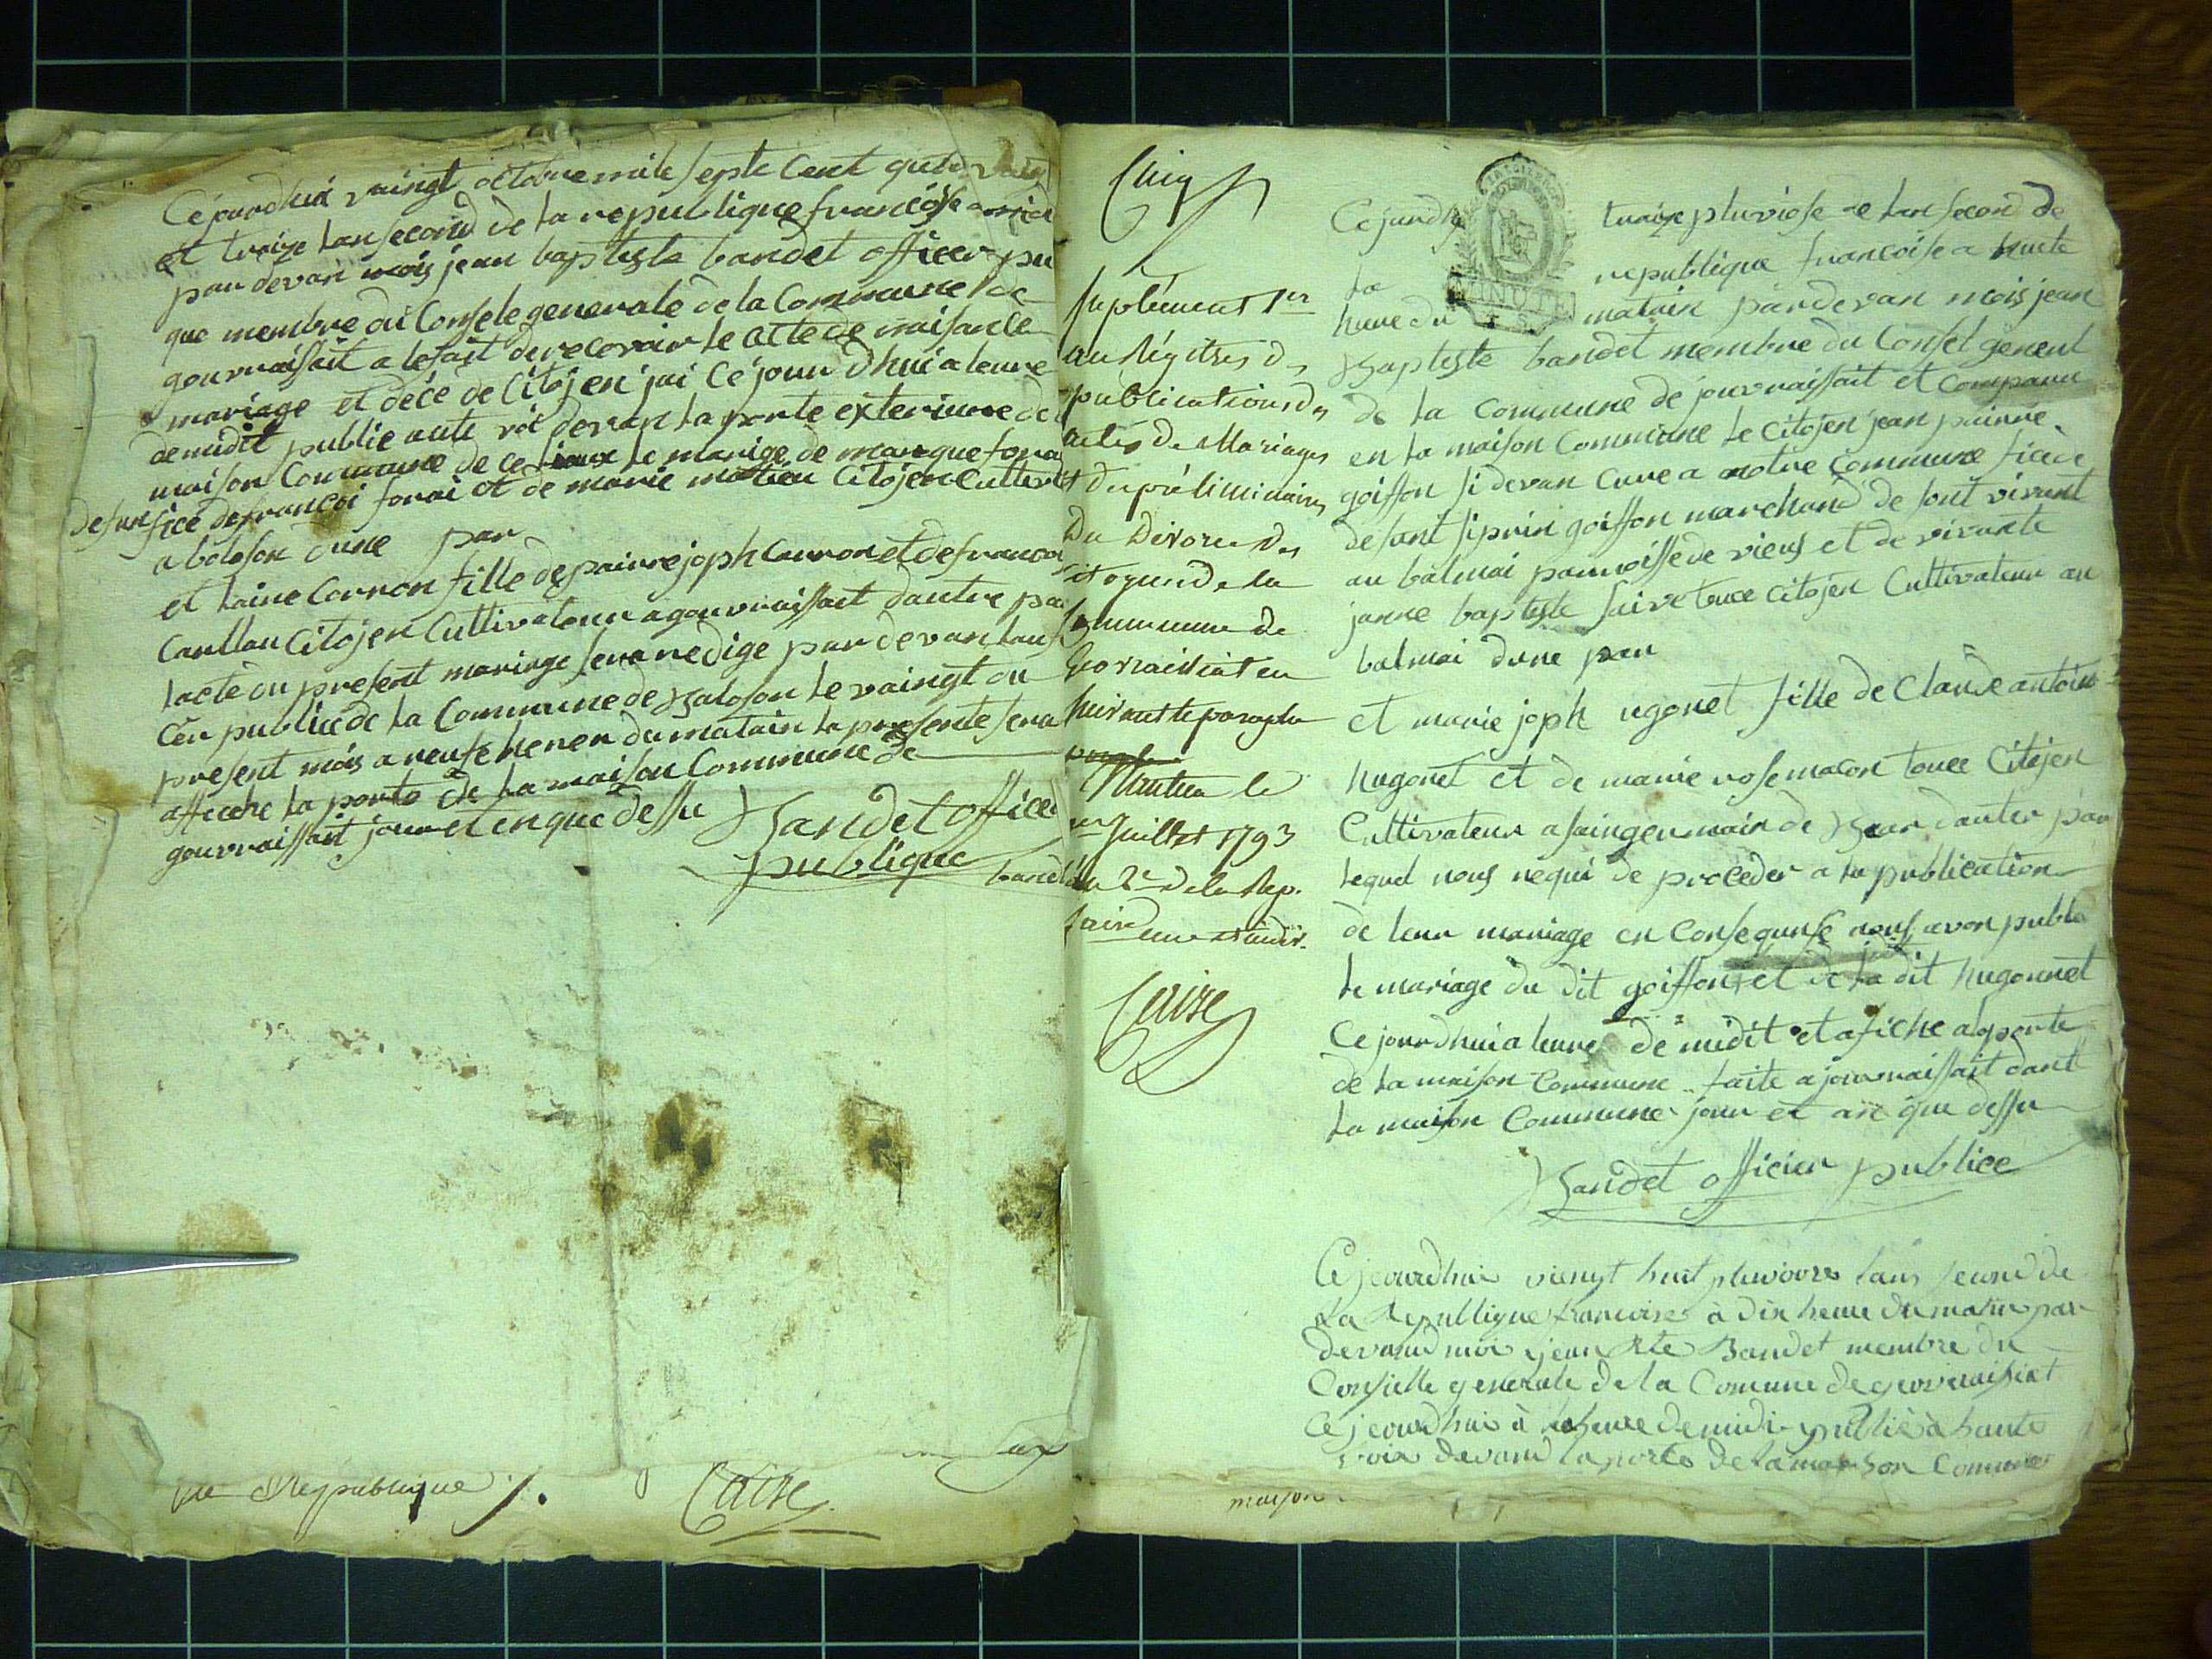 Cejourdhui vaingt octobre mile septe Cent quatre vaing
et traize lan second de la republique francoise
par devan mois jean baptiste bandet officer pu
que membre du Consele generale de la Commune de
gouvraissait a lefait de recevoir le acte de naisance
mariage et décé de Citojen jai Cé jour dhui a leure
de midit publie aute voi devan la porte exterieure de
maison Commune de ce lieux le marige de
defun fice de francoi forai et de marie matieu Citojen Cultivat
a boloson dune par
et laine Carron fille de pairre joph Carron et de francoi
Carllau Citojen Cultivateur a gouvraissait dautre par
lacte du present mariage sera redige par devan lau
Cér publice de la Commune de Baloson le vaingt du
present mois a neufe heren du matain la presente sera
affeche la porte de la maison Commune de
gouvraissait jour et en que dessu
Bandet officer
publique
bandet
une République ./.
Caire
Cinq
suplément 1er
au Régitres des
publications des
actes de Mariages
et du préliminaire
du Divorce des
citoyens de la
Commune de
Govraissiat en
huit
Nantua le
1er Juillet 1793
an 2e de la Rep.
une et indiv.
Caire
Cejourdh traize pluviose de lan second de
la republique francoise a huite
heure du matain pardevan mois jean
MINUTE
Baptiste bandet membre du Consel general
de la commune de jouvraissait et Comparu
en la maison Commune le Citojen jean pairre
goisson si devan Cure a notre Commune fice de
defunt siprin goisson marchand de sont vivant
au balmai parroisse de vieus et de vivante
janne baptiste faivre touce Citojen Cultivateur au
balmai dune par
et marie joph ugonet fille de Claude antoine
hugonet et de marie rose macon touce Citojen
Cultivateur a saingermain de Bear dauter par
lequel nous requi de procéder a la publication
de leur mariage en Consequnse nous avon publie
le mariage du dit goisson et de la dit hugonnet
Ce jourdhui a leure de midit et afiche a la porte
de la maison Commune faite a jouvraissait dant
la maison Commune jour et an que dessu
Bandet officier publice
Cejeourdhui viengt huit pluvioze lans second de
la Republlique francoise à dix heure du matin par
devand moi jean Bte Bandet membre du
Consielle generale de la Comune de geovraissiat
Cejeourdhui à leheure de midi publié à haute
voix devand la porte de la maison Comune
maison